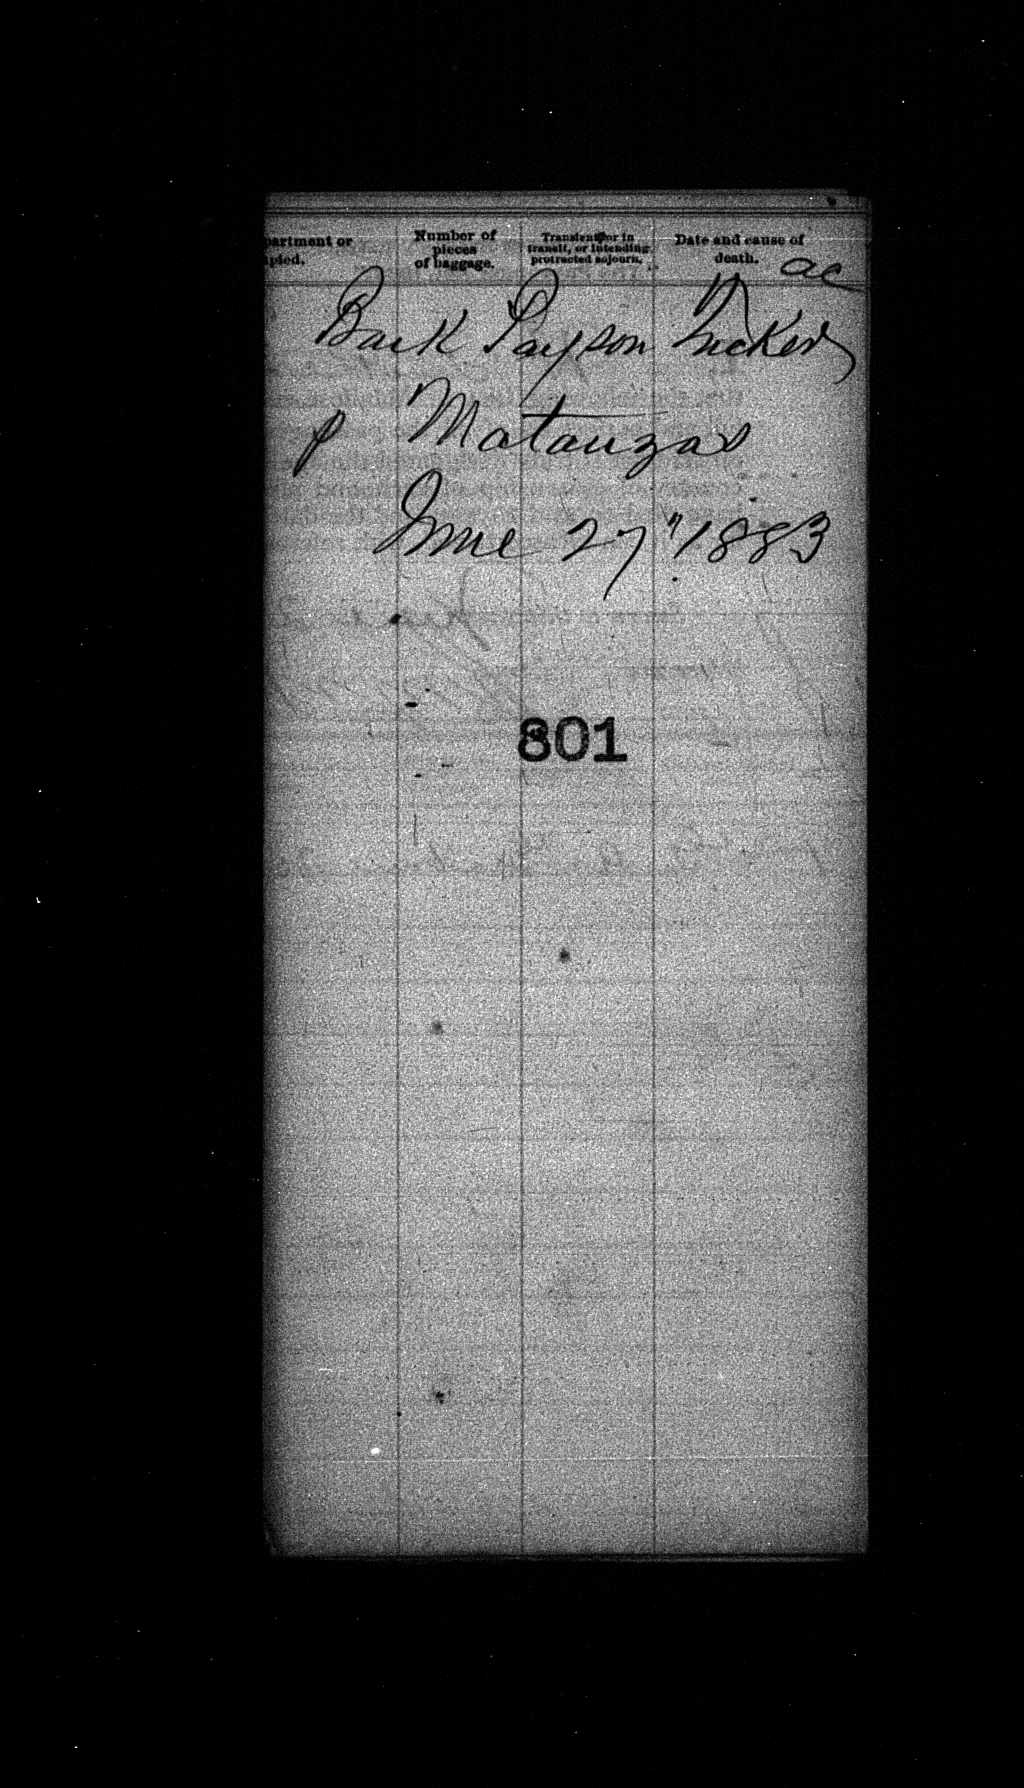 partment or
pied.
Number of
pieces
of baggage.
Transient or in
transit, or intending
protracted sojourn.
Date and cause of
death.
ac
Bark Payson Tucker
p Matanzas
June 27" 1883
801